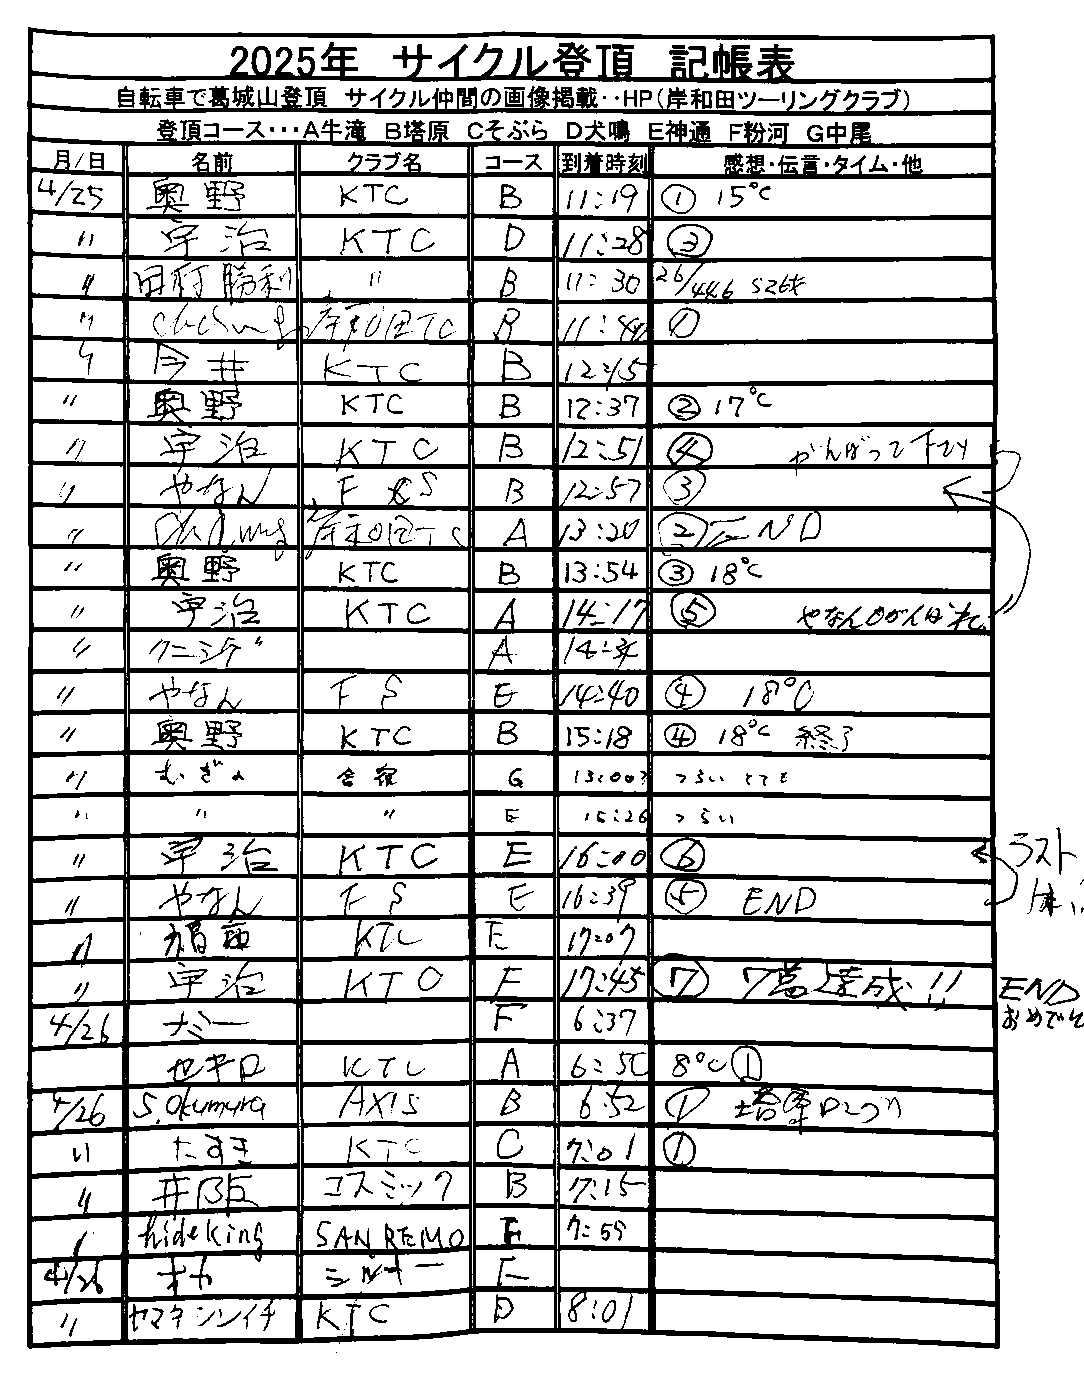 2025年 サイクル登頂 記帳表
自転車で葛城山登頂 サイクル仲間の画像掲載‥HP(岸和田ツーリングクラブ)
登頂コース・・・A牛滝 B塔原 Cそぶら D犬鳴 E神通 F粉河 G中尾
月/日 名前 クラブ名 コース 到着時刻 感想・伝言・タイム・他
4/25 奥野 KTC B 11:19 ① 15℃
〃 宇治 KTC D 11:28 ③
〃 田村勝利 〃 B 11:30 26/446 526
〃 岸和田TC B 11:44 ①
〃 今井 KTC B 12:15
〃 奥野 KTC B 12:37 ② 17℃
〃 宇治 KTC B 12:51 ④ がんばって下さい
〃 やなん F S B 12:57 ③
〃 岸和田TC A 13:20 ② END
〃 奥野 KTC B 13:54 ③ 18℃
〃 宇治 KTC A 14:17 ⑤ やなんもがんばれ
〃 クニシゲ A
〃 やなん F S E 14:40 ④ 18℃
〃 奥野 KTC B 15:18 ④ 18℃ 終了
〃 むぎょ 合宿 G 13:00? つらい とても
〃 〃 〃 E 15:26 つらい
〃 宇治 KTC E 16:00 ⑥ ラスト
〃 やなん F S E 16:39 ⑤ END
〃 KTC E 17:07
〃 宇治 KTC F 17:45 ⑦ 7葛達成!! END
おめでと
4/26 ナミー F 6:37
セキロ KTC A 6:50 8℃ ①
4/26 S.Okumura AXIS B 6:52 ①
〃 たすき KTC C 7:01 ①
〃 井阪 コスミック B 7:15
〃 hideking SANREMO F 7:59
4/26 オカ シルナー F
〃 ヤマケンイチ KTC D 8:01